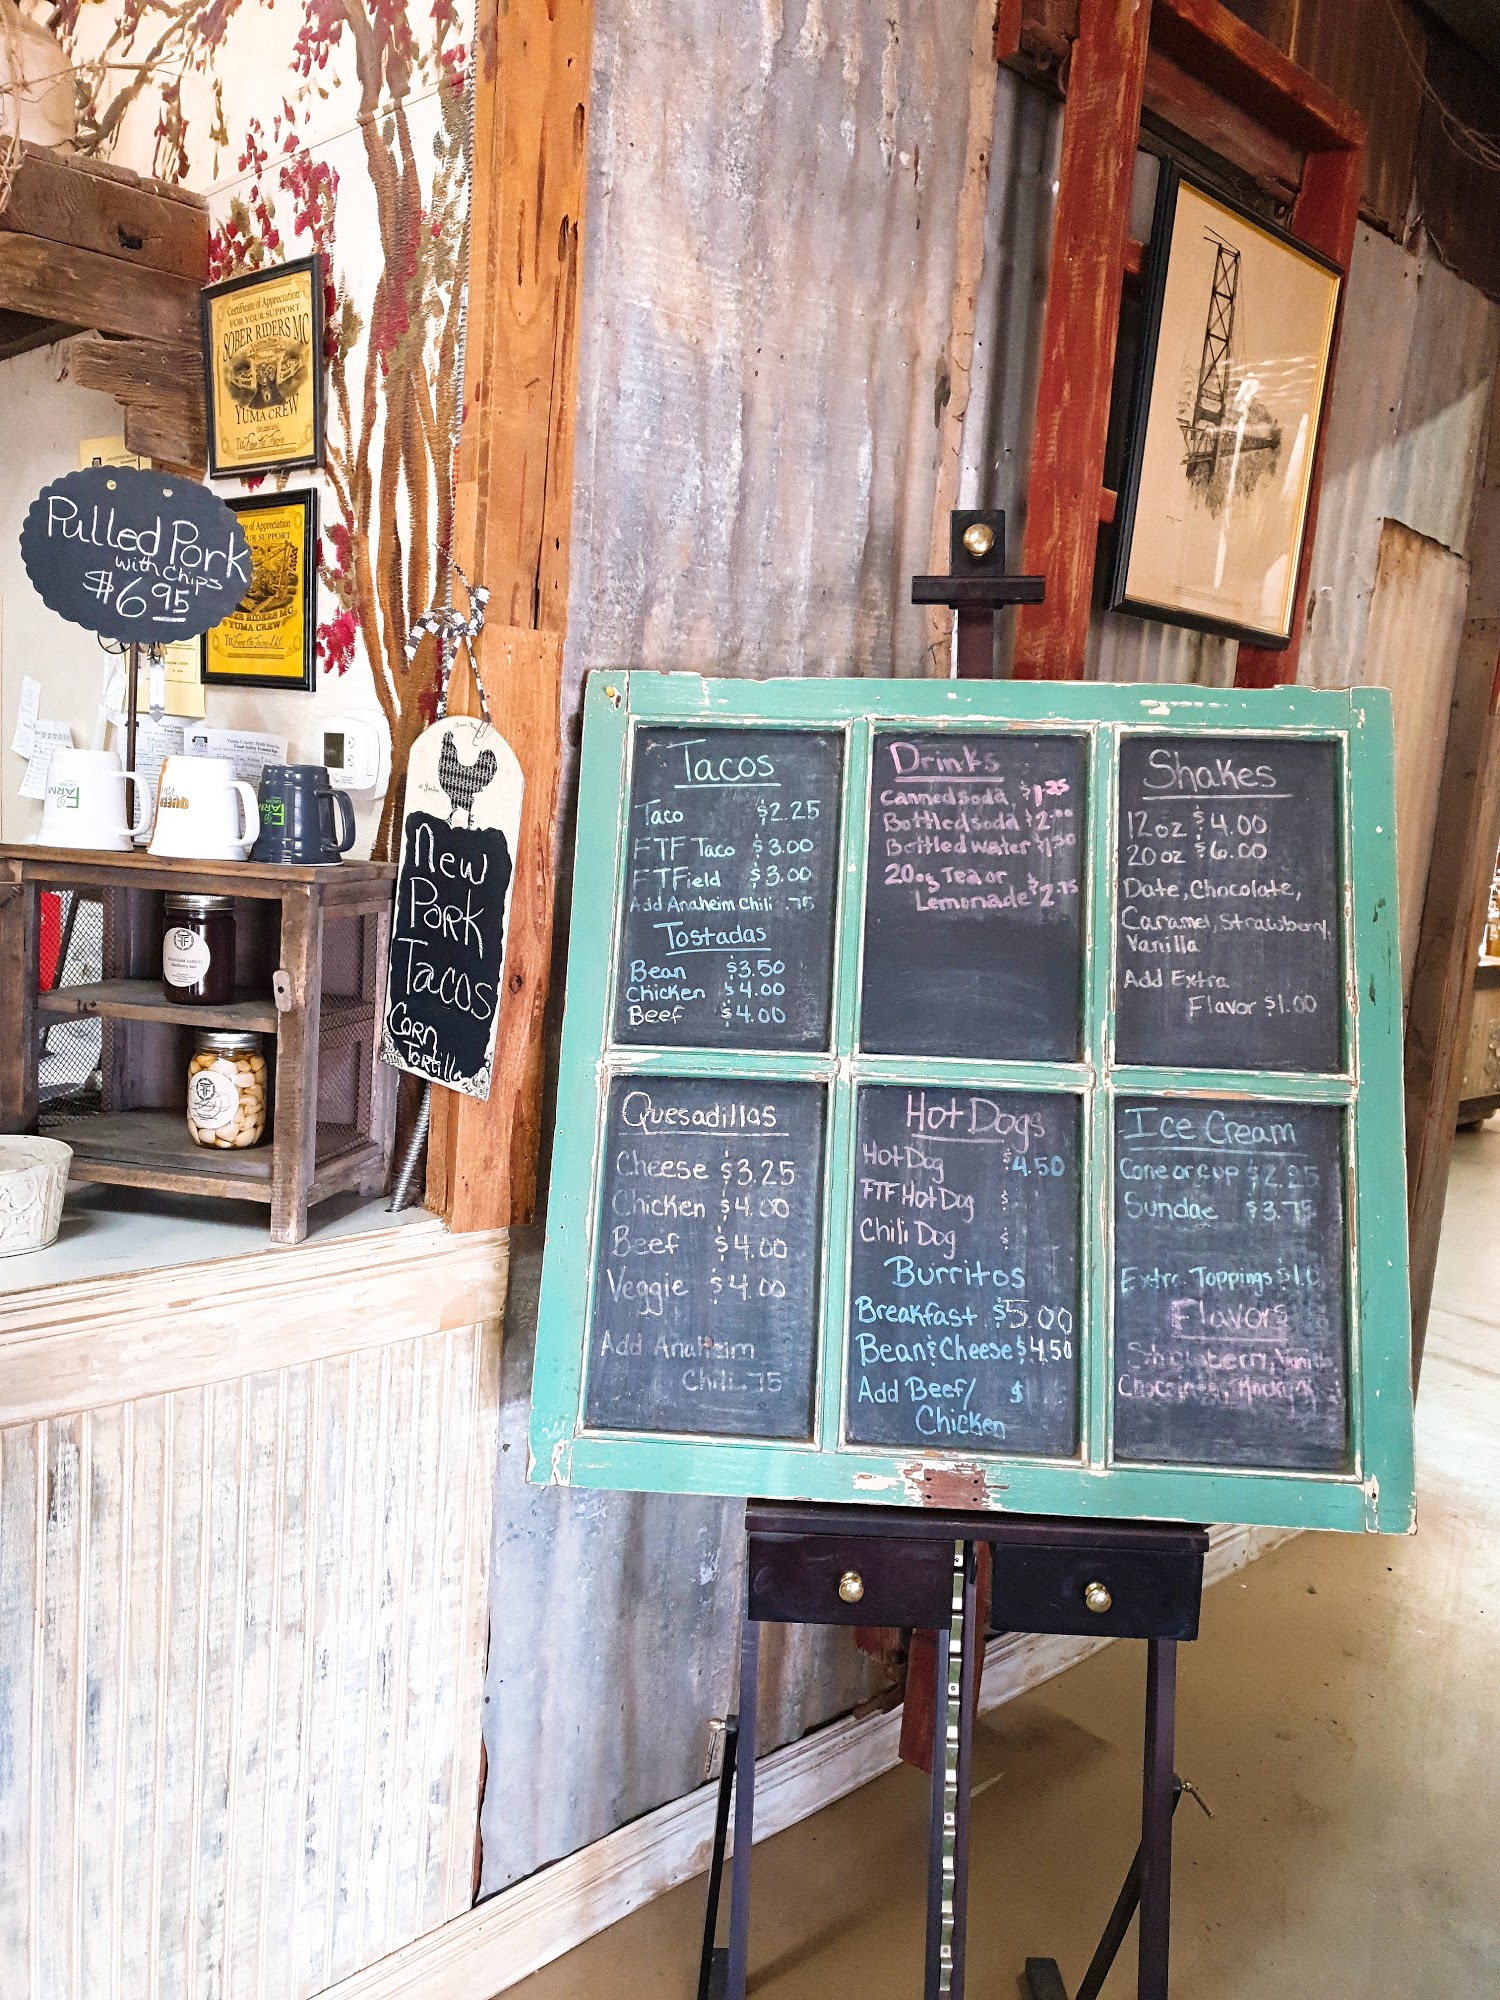 Certificate of Appreciation
FOR YOUR SUPPORT
SOBER RIDERS MC
YUMA CREW
Pulled Pork
with chips
$6.95
of Appreciation
SUPPORT
RIDERS MC
YUMA CREW
FARM
QUEEN
FARM
New
Pork
Tacos
Corn
Tortilla
Tacos
Taco $2.25
FTF Taco $3.00
FTField $3.00
Add Anaheim Chili .75
Tostadas
Bean $3.50
Chicken $4.00
Beef $4.00
Drinks
Canned soda $1.25
Bottled soda $2.00
Bottled water $1.50
20oz Tea or
Lemonade $2.75
Shakes
12oz $4.00
20oz $6.00
Date, Chocolate,
Caramel, Strawberry,
Vanilla
Add Extra
Flavor $1.00
Quesadillas
Cheese $3.25
Chicken $4.00
Beef $4.00
Veggie $4.00
Add Anaheim
Chili .75
Hot Dogs
Hot Dog $4.50
FTF Hot Dog $
Chili Dog $
Burritos
Breakfast $5.00
Bean & Cheese $4.50
Add Beef/ $
Chicken
Ice Cream
Cone or cup $2.25
Sundae $3.75
Extra Toppings
Flavors